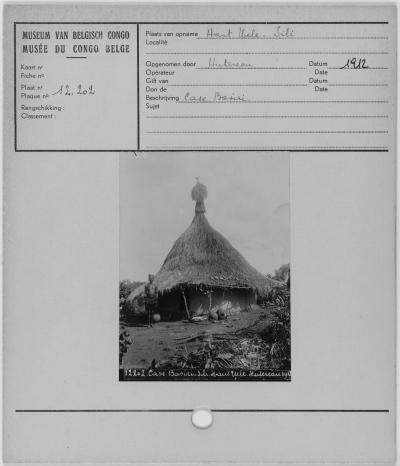 MUSEUM VAN BELGISCH CONGO
MUSÉE DU CONGO BELGE
Kaart nr
Fiche no
Plaat nr
Plaque no 12.202
Rangschikking :
Classement :
Plaats van opname Haut Uele. Sili
Localité
Opgenomen door Hutereau Datum 1912
Opérateur Date
Gift van Datum
Don de Date
Beschrijving Case Basiri
Sujet
12202 Case Basiri Sili Haut Uele Hutereau